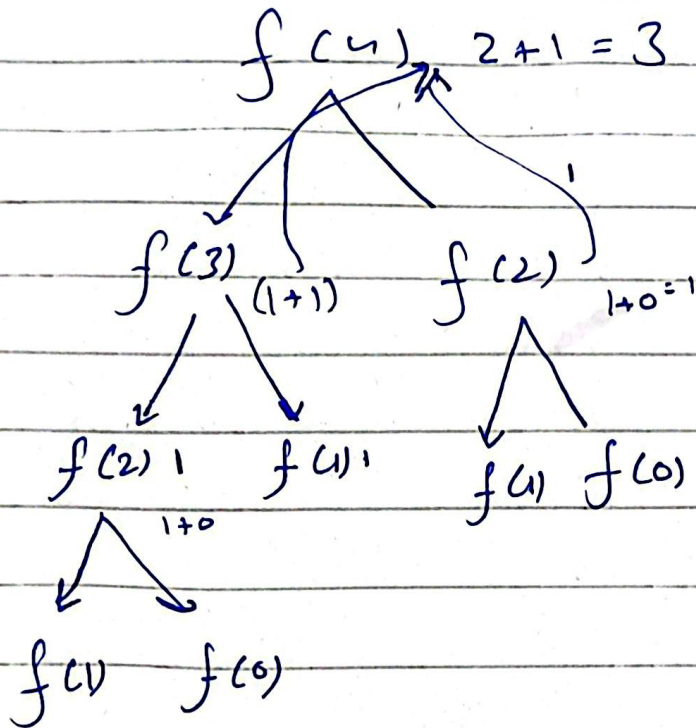 f(4) 2+1=3
1
f(3) (1+1) f(2) 1+0=1
f(2) 1 f(1) 1 f(1) f(0)
1+0
f(1) f(0)